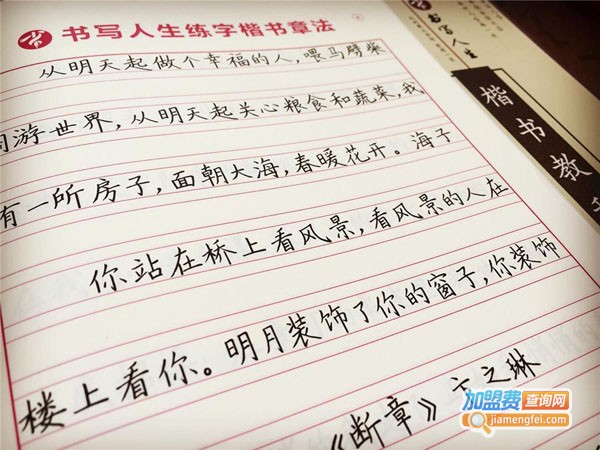 书写人生练字楷书章法
从明天起做个幸福的人，喂马劈柴
周游世界，从明天起关心粮食和蔬菜，我
有一所房子，面朝大海，春暖花开。海子
你站在桥上看风景，看风景的人在
楼上看你。明月装饰了你的窗子，你装饰
《断章》卞之琳
书写人生
楷书教
加盟费查询网
jiamengfei.com